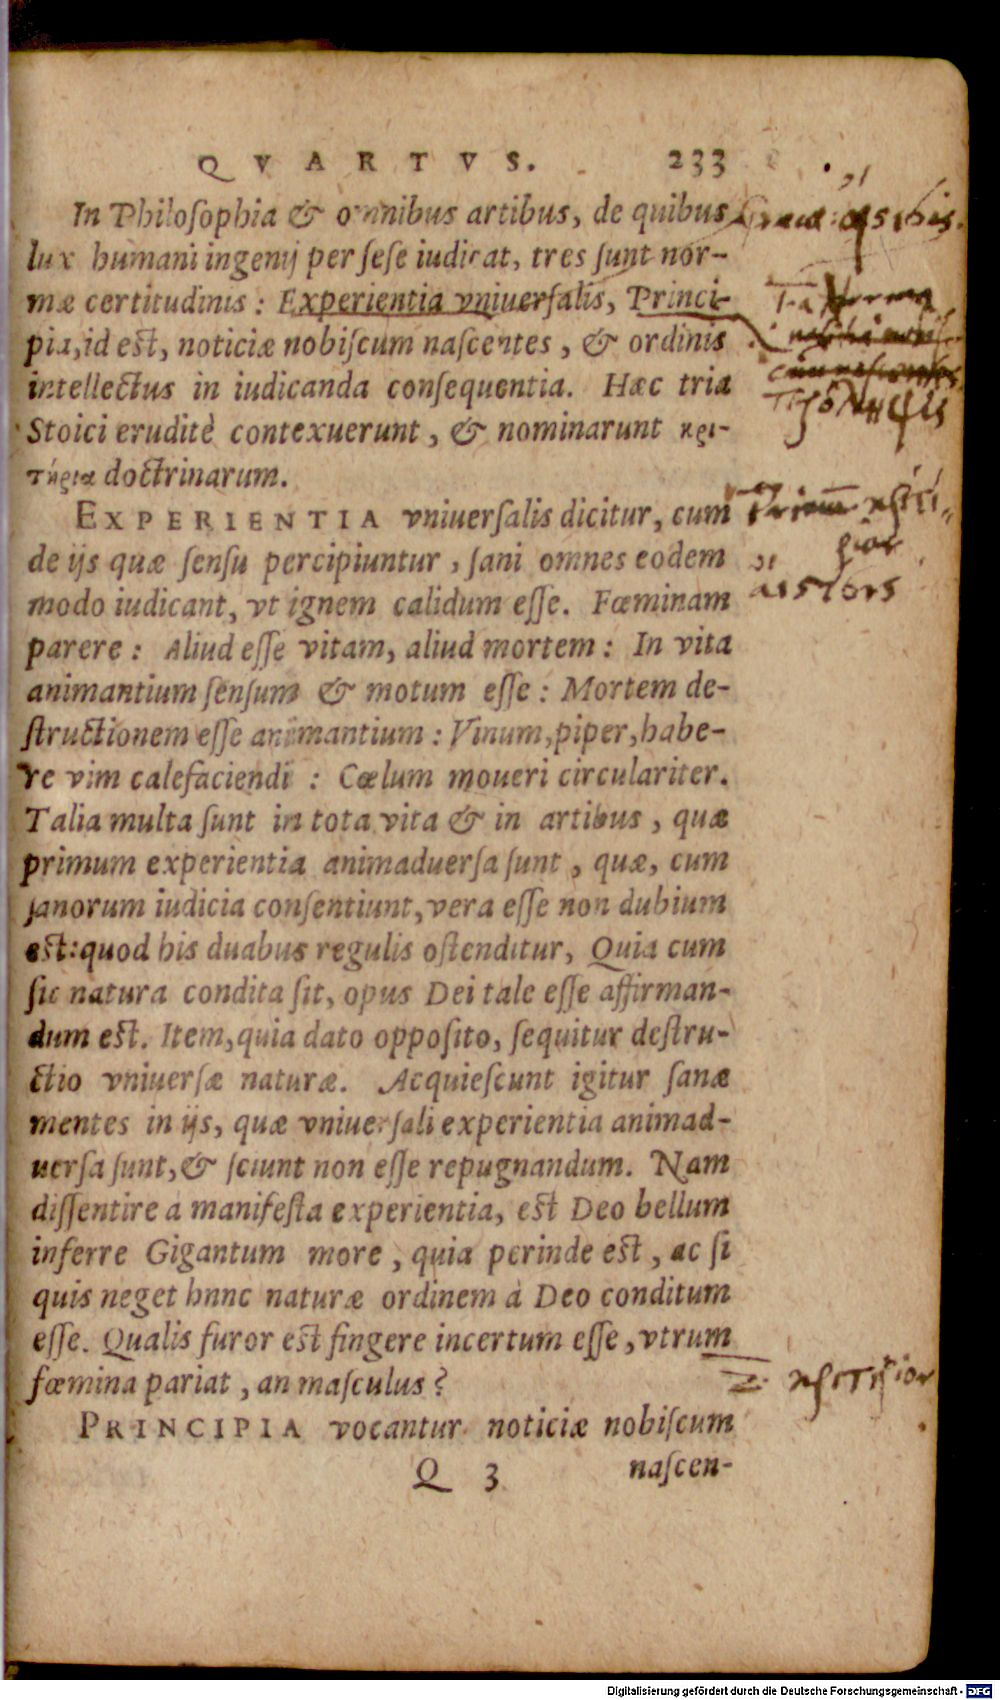 QVARTVS. 233
In Philosophia & omnibus artibus, de quibus
lux humani ingenij per sese iudicat, tres sunt nor-
mæ certitudinis: Experientia vniuersalis, Princi-
pia, id est, noticiæ nobiscum nascentes, & ordinis
intellectus in iudicanda consequentia. Hæc tria
Stoici eruditè contexuerunt, & nominarunt κρι-
τήρια doctrinarum.
EXPERIENTIA vniuersalis dicitur, cum
de ijs quæ sensu percipiuntur, sani omnes eodem
modo iudicant, vt ignem calidum esse. Fœminam
parere: Aliud esse vitam, aliud mortem: In vita
animantium sensum & motum esse: Mortem de-
structionem esse animantium: Vinum, piper, habe-
re vim calefaciendi: Cœlum moueri circulariter.
Talia multa sunt in tota vita & in artibus, quæ
primum experientia animaduersa sunt, quæ, cum
sanorum iudicia consentiunt, vera esse non dubium
est: quod his duabus regulis ostenditur, Quia cum
sic natura condita sit, opus Dei tale esse affirman-
dum est. Item, quia dato opposito, sequitur destru-
ctio vniuersæ naturæ. Acquiescunt igitur sanæ
mentes in ijs, quæ vniuersali experientia animad-
uersa sunt, & sciunt non esse repugnandum. Nam
dissentire a manifesta experientia, est Deo bellum
inferre Gigantum more, quia perinde est, ac si
quis neget hnnc naturæ ordinem à Deo conditum
esse. Qualis furor est fingere incertum esse, vtrum
fœmina pariat, an masculus?
PRINCIPIA vocantur noticiæ nobiscum
Q 3 nascen-
Digitalisierung gefördert durch die Deutsche Forschungsgemeinschaft - DFG